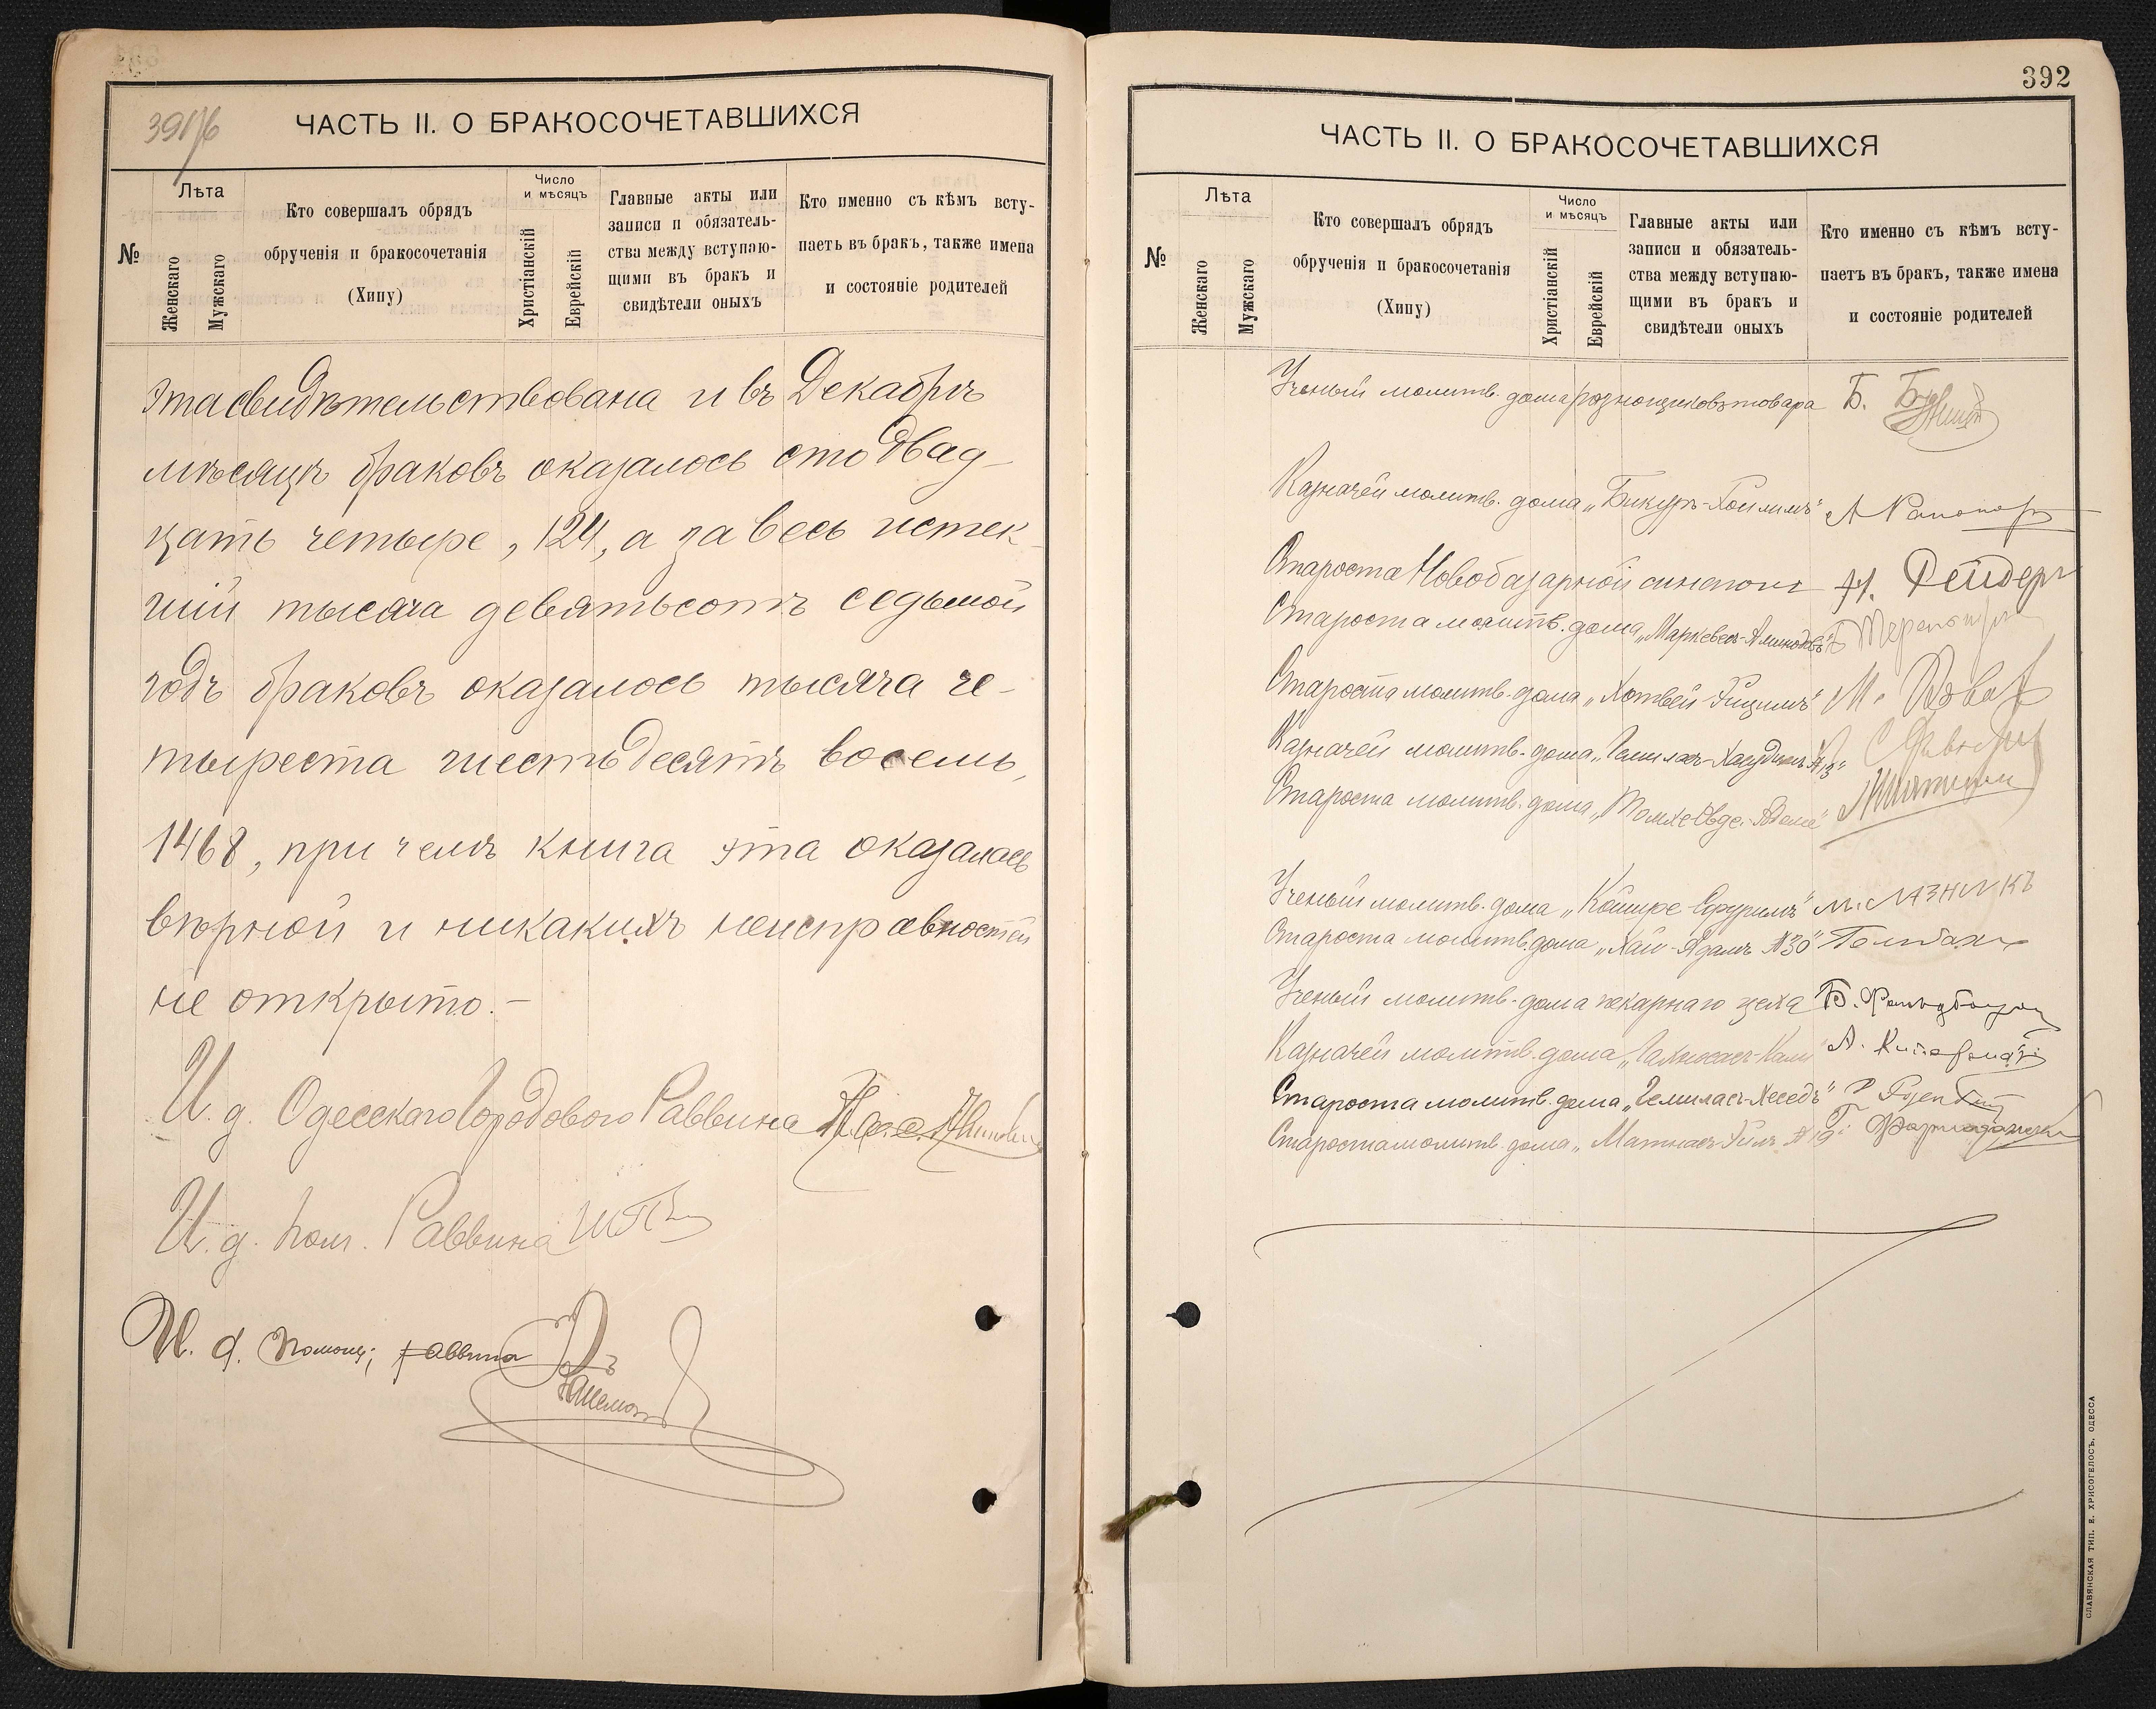 391/б
ЧАСТЬ II. О БРАКОСОЧЕТАВШИХСЯ
№
Лѣта
Женскаго
Мужскаго
Кто совершалъ обрядъ
обрученія и бракосочетанія
(Хипу)
Число
и мѣсяцъ
Христіанскій
Еврейскій
Главные акты или
записи и обязатель-
ства между вступаю-
щими въ бракъ и
свидѣтели оныхъ
Кто именно съ кѣмъ всту-
паетъ въ бракъ, также имена
и состояніе родителей
эта свидѣтельствована и въ Декабрѣ
мѣсяцѣ браковъ оказалось сто двад-
цать четыре, 124, а за весь истек-
шій тысяча девятьсотъ седьмой
годъ браковъ оказалось тысяча че-
тыреста шестьдесятъ восемь,
1468, при чемъ книга эта оказалась
вѣрной и никакихъ неисправностей
не открыто.-
И. д. Одесскаго Городового Раввина
И. д. пом. Раввина
И. д. Помощ; раввина
392
ЧАСТЬ II. О БРАКОСОЧЕТАВШИХСЯ
№
Лѣта
Женскаго
Мужскаго
Кто совершалъ обрядъ
обрученія и бракосочетанія
(Хипу)
Число
и мѣсяцъ
Христіанскій
Еврейскій
Главные акты или
записи и обязатель-
ства между вступаю-
щими въ бракъ и
свидѣтели оныхъ
Кто именно съ кѣмъ всту-
паетъ въ бракъ, также имена
и состояніе родителей
Ученый молитв. дома разнощиковъ товара Б.
Казначей молитв. дома „Бикуръ-Хоилимъ" А Рапопорт
Староста Новобазарной синагоги Н. Рейдеръ
Староста молитв. дома
Староста молитв. дома М.
Казначей молитв. дома „Гемиласъ-Хасудимъ
Староста молитв. дома
Ученый молитв. дома „Койшре-Сфуримъ" М. МАЗНИКЪ
Староста молитв. дома „Хаи-Адамъ №30"
Ученый молитв. дома пекарнаго цеха Б.
Казначей молитв. дома А.
Староста молитв. дома „Гемиласъ-Хеседъ"
Староста молитв. дома №19"
СЛАВЯНСКАЯ ТИП. Е. ХРИСОГЕЛОСЪ, ОДЕССА